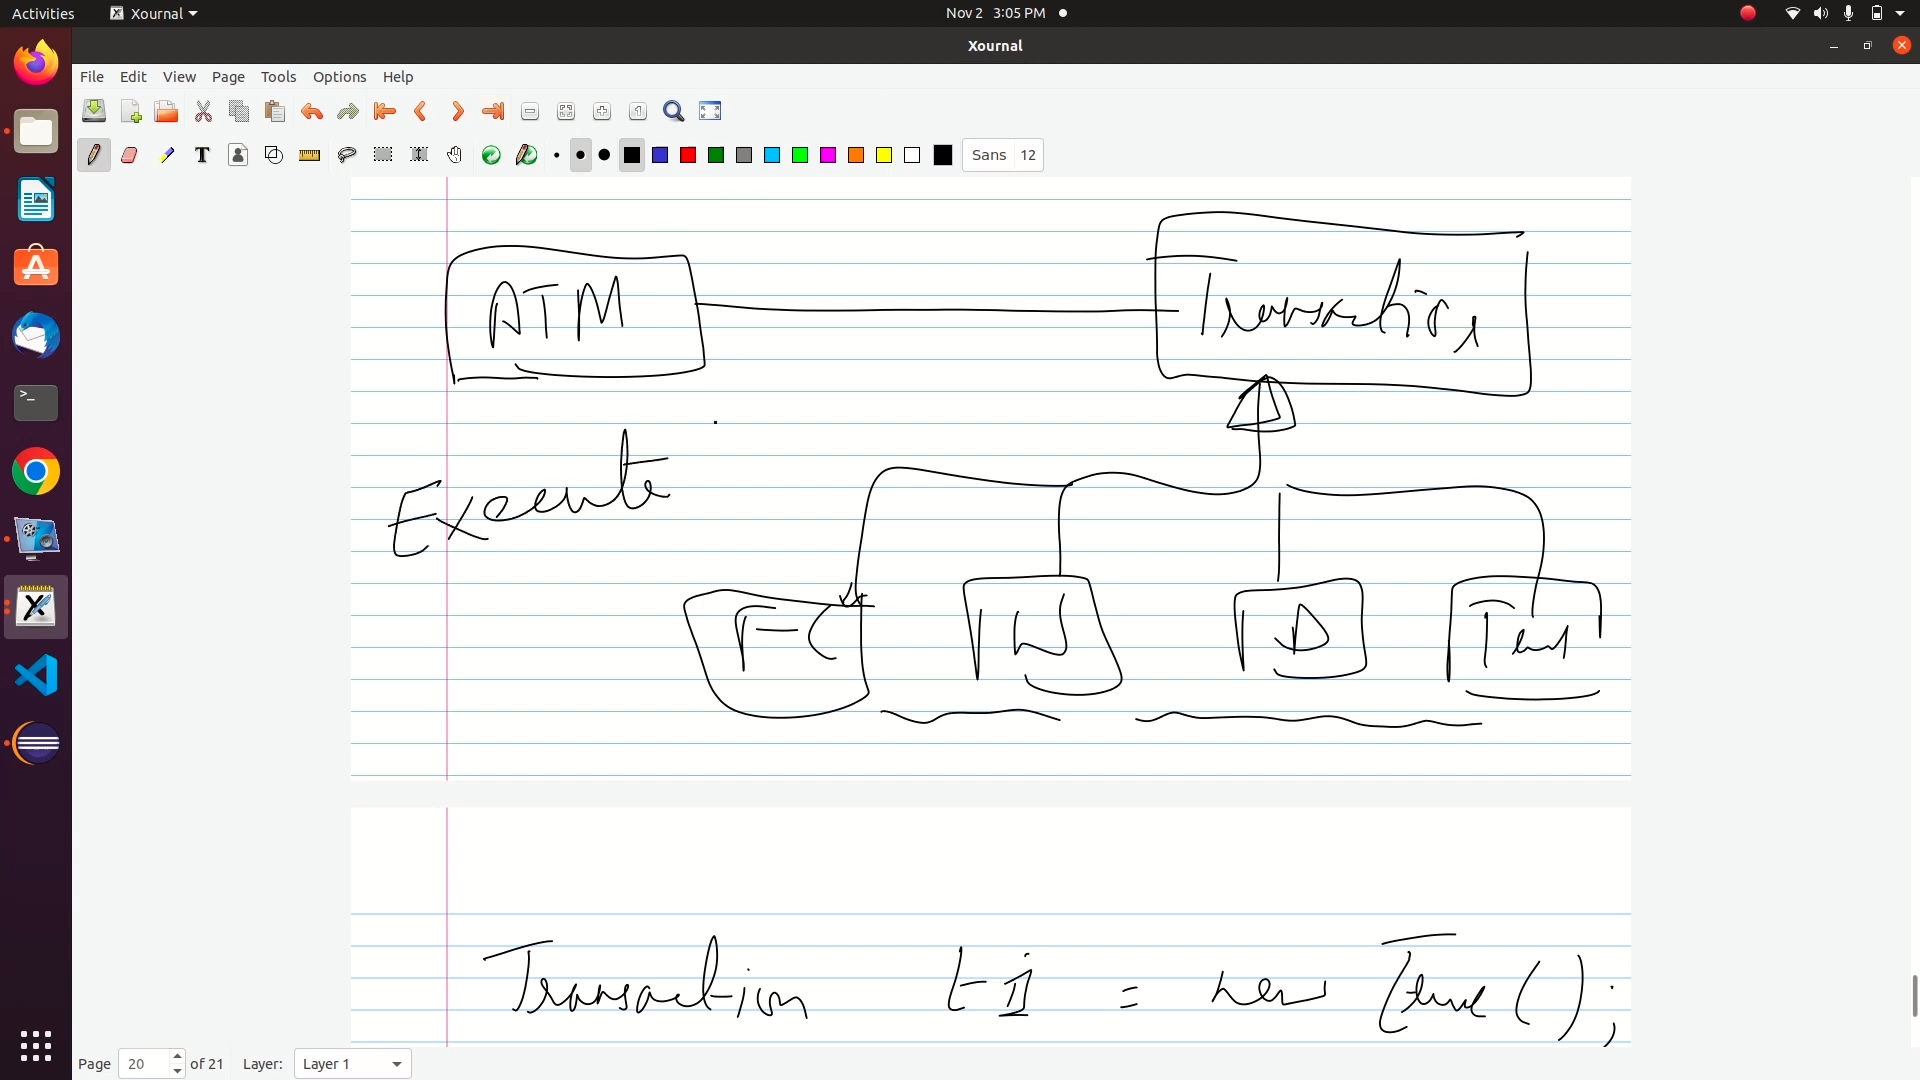 Activities Xournal Nov 2 3:05 PM
Xournal
File Edit View Page Tools Options Help
Sans 12
ATM Transaction
Execute
FC W D
Transaction = new ();
Page 20 of 21 Layer: Layer 1